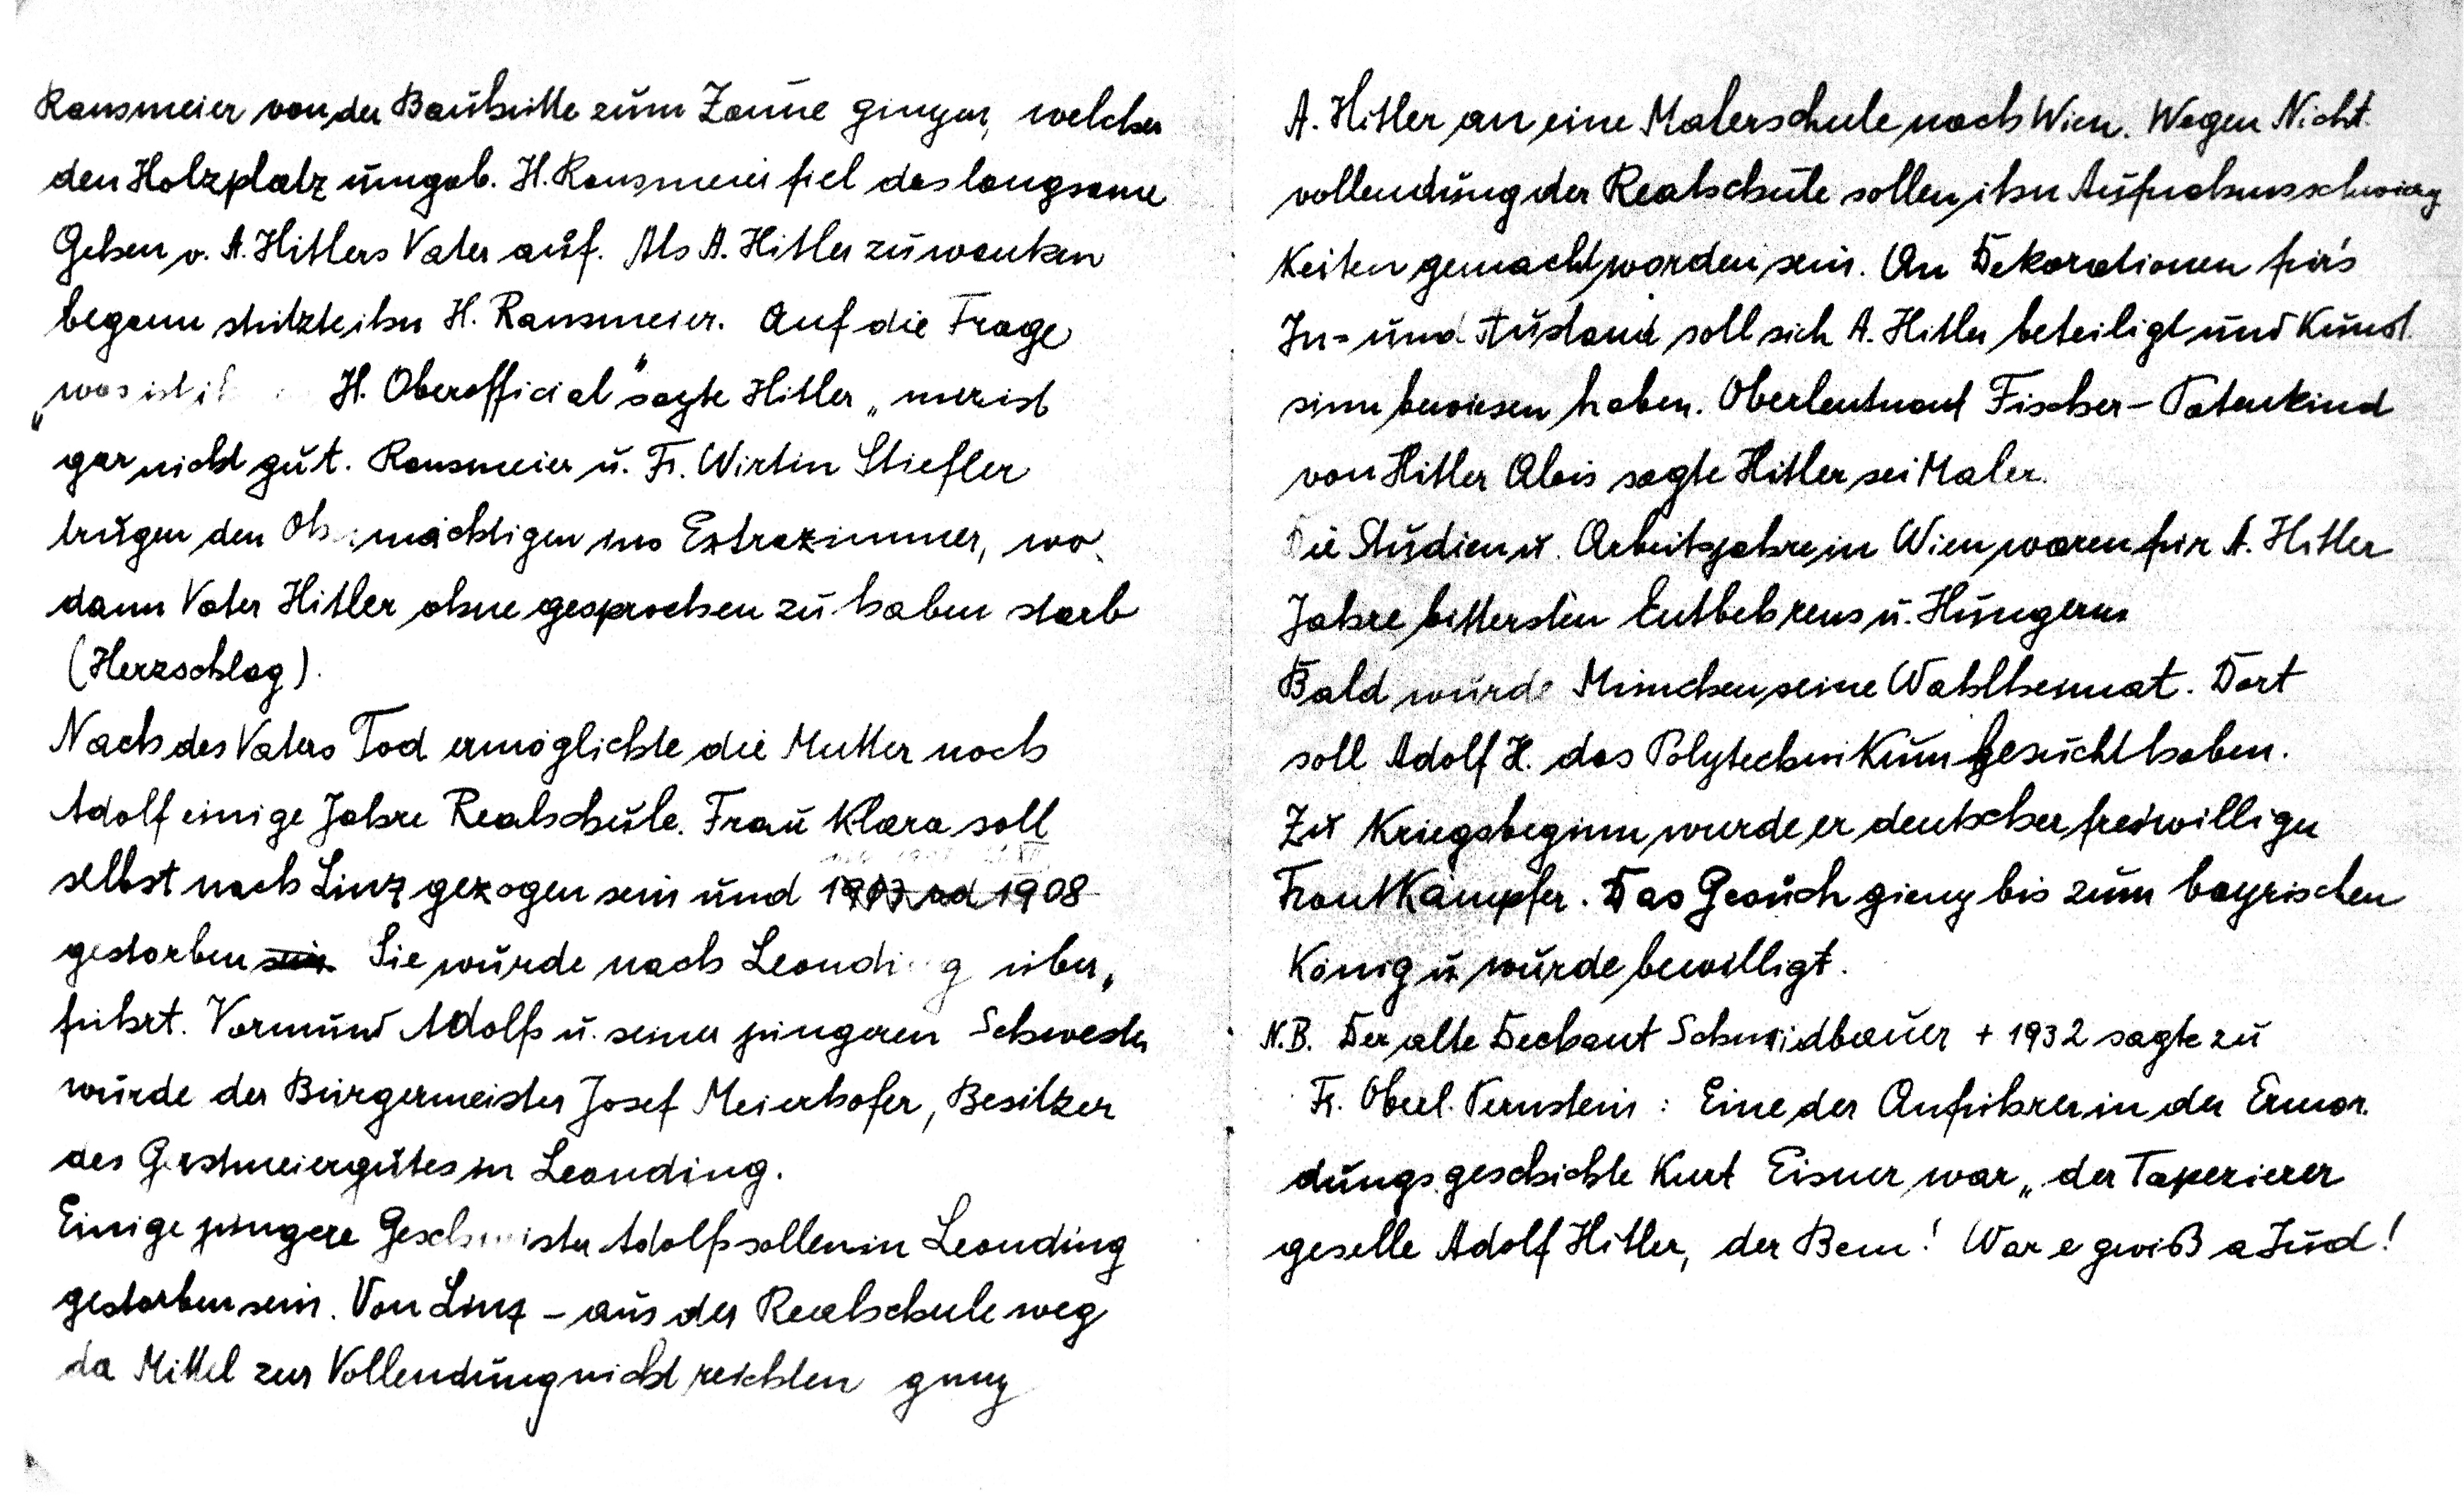 Ransmeier von der Bauhütte zum Zaune gingen, welcher
den Holzplatz umgab. H. Ransmeier fiel das langsame
Gehen v. A. Hitlers Vater auf. Als A. Hitler zu wanken
begann stützte ihn H. Ransmeier. Auf die Frage
„was ist i H. Oberofficial" sagte Hitler „mir ist
gar nicht gut. Ransmeier u. Fr. Wirtin Stiefler
trugen den Ohnmächtigen ins Extrazimmer, wo
dann Vater Hitler ohne gesprochen zu haben starb
(Herzschlag).
Nach des Vaters Tod ermöglichte die Mutter noch
Adolf einige Jahre Realschule. Frau Klara soll
selbst nach Linz gezogen sein und 1907 od 1908
gestorben sein. Sie wurde nach Leonding über„
führt. Vormund Adolfs u. seiner jüngeren Schwester
wurde der Bürgermeister Josef Meierhofer, Besitzer
des Gastmeiergutes in Leonding.
Einige jüngere Geschwister Adolfs sollen in Leonding
gestorben sein. Von Linz – aus der Realschule weg
da Mittel zur Vollendung nicht reichten ging
A. Hitler an eine Malerschule nach Wien. Wegen Nicht
vollendung der Realschule sollen ihn Aufnahmsschwierig
Keiten gemacht worden sein. An Dekorationen für's
In= und Ausland soll sich A. Hitler beteiligt und Kunst
sinn bewiesen haben. Oberleutnant Fischer – Patenkind
von Hitler Alois sagte Hitler sei Maler.
Die Studien u. Arbeitsjahre in Wien waren für A. Hitler
Jahre bittersten Entbehrens u. Hungerns
Bald wurde München seine Wahlheimat. Dort
soll Adolf H. das Polytechnikum besucht haben.
Zu Kriegsbeginn wurde er deutscher freiwilliger
Frontkämpfer. Das Gesuch gieng bis zum bayrischen
König u wurde bewilligt.
N.B. Der alte Dechant Schmidbauer + 1932 sagte zu
Fr. Oberl. Pernstein : Eine der Anführer in der Ermor
dungsgeschichte Kurt Eisner war „der Tapezierer
geselle Adolf Hitler, der Bem! War e gwiß a Jud!